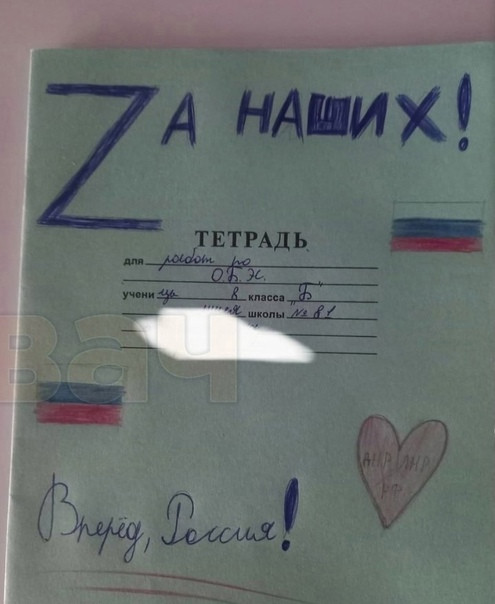 Zа наших!
ТЕТРАДЬ
для работ по
О.Б.Ж.
учени цы 8 класса "Б"
школы "№ 81
вач
ДНР ЛНР
РФ
Вперёд, Россия!